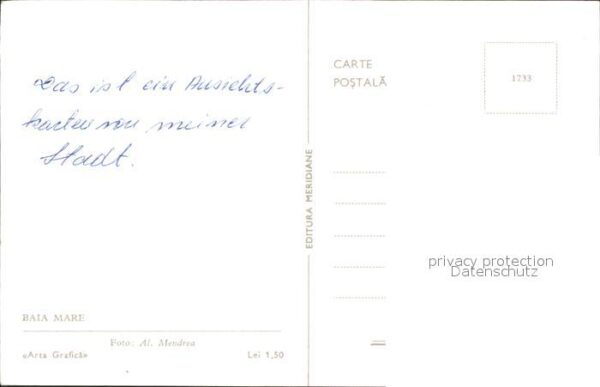 Das ist ein Ansichts-
karten von meiner
Stadt.
BAIA MARE
Foto: Al. Mendrea
«Arta Grafică»
Lei 1,50
EDITURA MERIDIANE
CARTE
POȘTALĂ
1733
privacy protection
Datenschutz